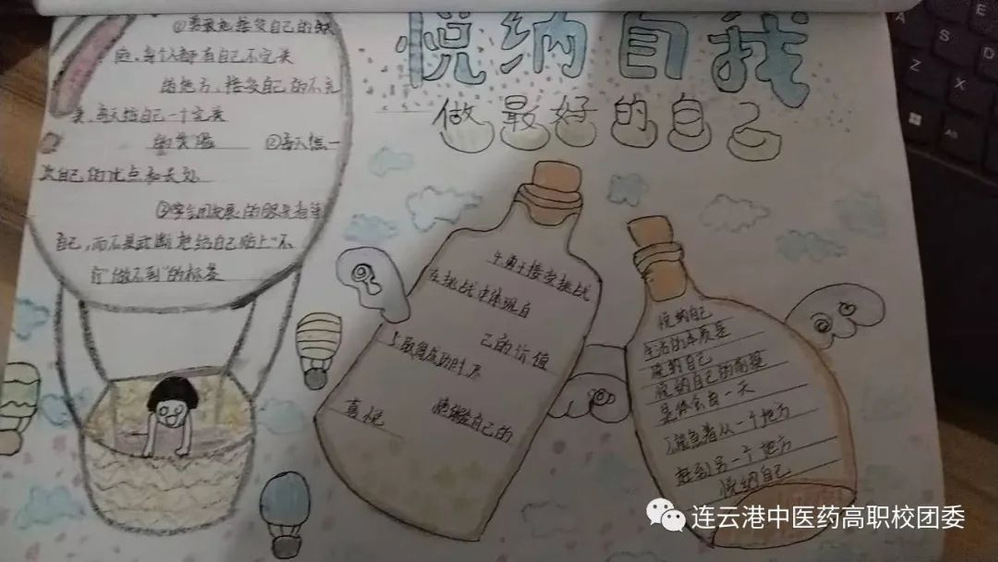 悦纳自我
做最好的自己
①要承认接受自己的缺
陷,每个人都有自己不完美
的地方,接受自己的不完
美,每天给自己一个完美
的 ②每天想一
次自己的优点和长处
③学会用发展的眼光看待
自己,而不是武断地给自己贴上"不
行""做不到"的标签
4勇于接受挑战
在挑战中体现自
己的价值
5取得成功时尽
情体验自己的
喜悦
悦纳自己
生活的本质是
悦纳自己
悦纳自己的前提
是你会有一天
不能急着从一个地方
赶到另一个地方
悦纳自己
A
S
D
Z
X
Alt
连云港中医药高职校团委